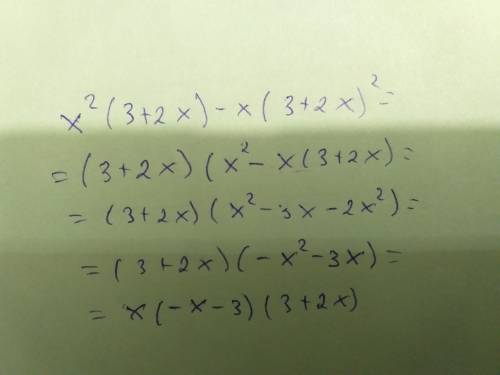 x²(3+2x)-x(3+2x)²=
=(3+2x)(x²-x(3+2x)=
=(3+2x)(x²-3x-2x²)=
=(3+2x)(-x²-3x)=
=x(-x-3)(3+2x)